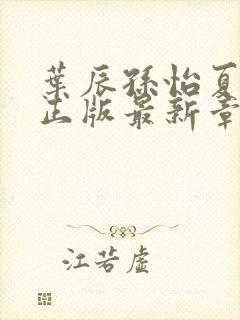 葉辰孫怡夏
正版最新章
江若虛